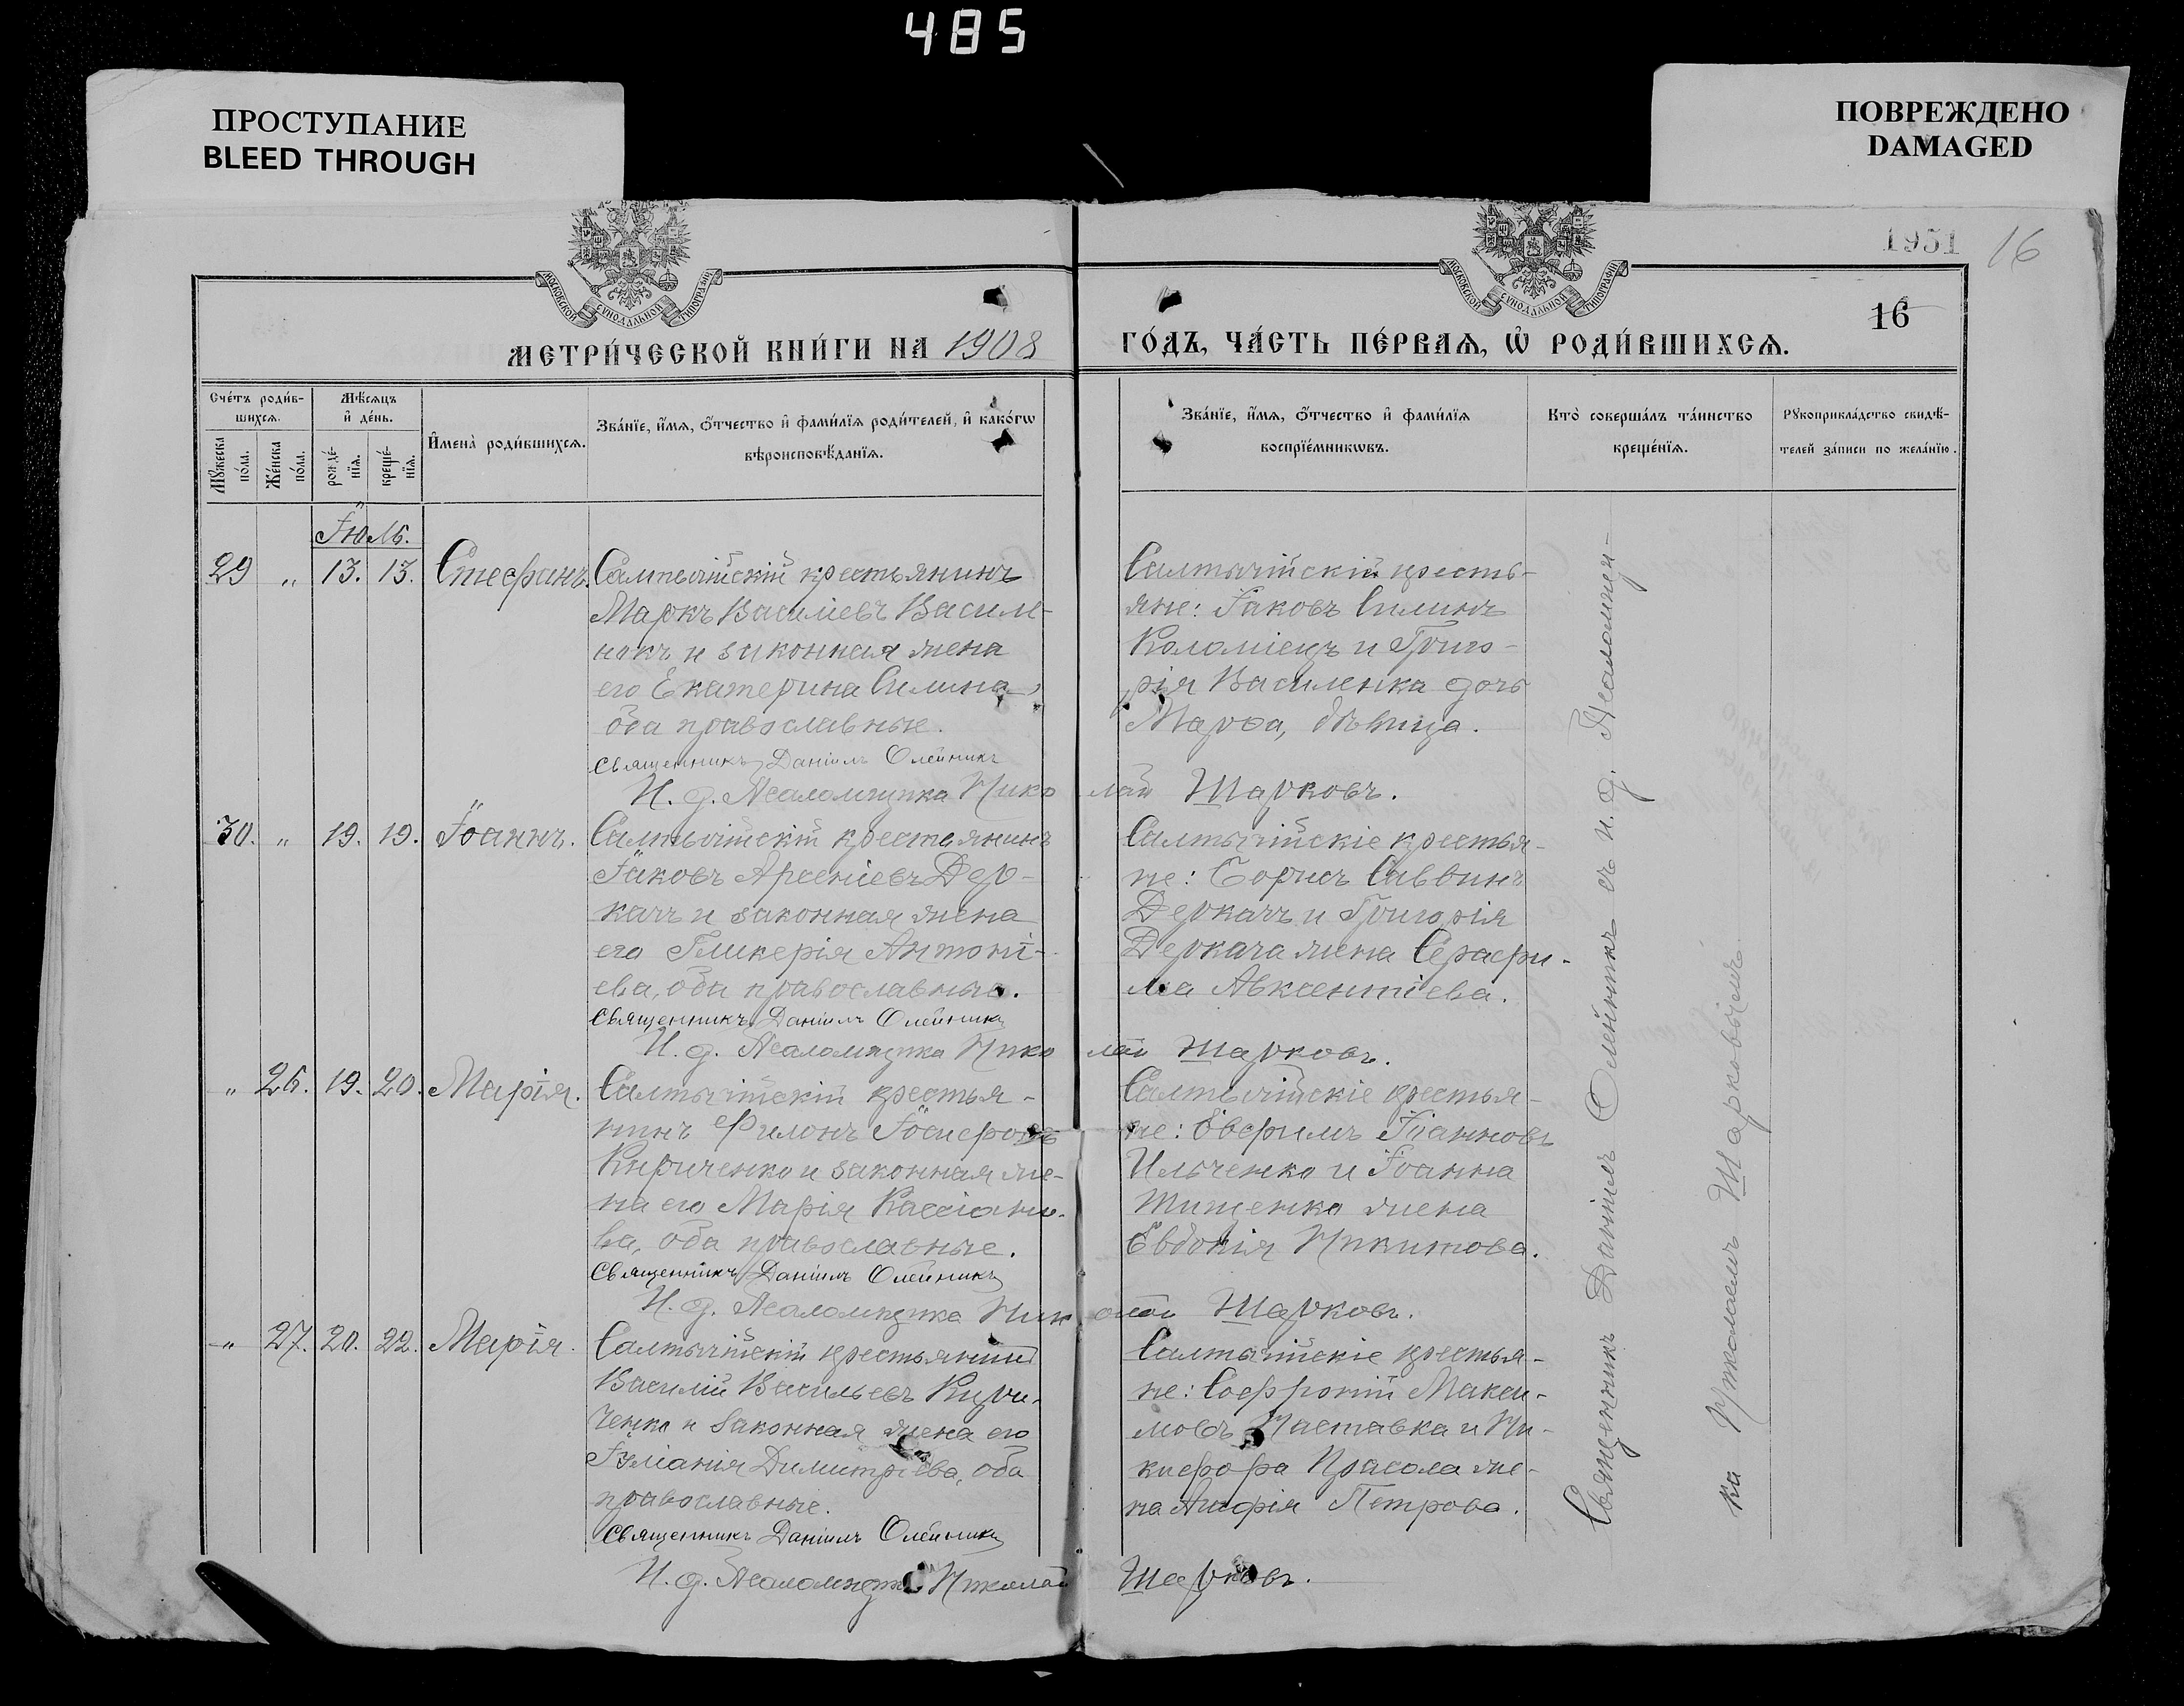 485
ПРОСТУПАНИЕ
BLEED THROUGH
ПОВРЕЖДЕНО
DAMAGED
МОСКОВСКОЙ СѴНОДАЛЬНОЙ ТИПОГРАФІИ
МОСКОВСКОЙ СѴНОДАЛЬНОЙ ТИПОГРАФІИ
1951 16
16
МЕТРИ́ЧЕСКОЙ КНИ́ГИ НА 1908
ГО́ДЪ, ЧА́СТЬ ПЕ́РВАѦ, Ѡ҆ РОДИ́ВШИХСѦ.
Сче́тъ роди́в-
шихсѧ.
Мꙋжеска по́ла.
Же́нска по́ла.
Мѣ́сѧцъ
и҆ де́нь.
рожде́-
нїѧ.
креще́-
нїѧ.
И҆мена̀ роди́вшихсѧ.
Зва́нїе, и҆́мѧ, ѻ҆́тчество и҆ фами́лїѧ роди́телей, и҆ како́гѡ
вѣроисповѣ́данїѧ.
Зва́нїе, и҆́мѧ, ѻ҆́тчество и҆ фами́лїѧ
воспрїе́мникѡвъ.
Кто̀ соверша́лъ та́инство
креще́нїѧ.
Рꙋкоприкла́дство свидѣ́-
телей за́писи по жела́нїю.
Іюль.
29 „ 13. 13. Стефанъ. Салтычійскій крестьянинъ
Маркъ Василіевъ Василе-
нокъ и законная жена
его Екатерина Силина,
оба православные.
Священникъ Даніилъ Олейникъ
И. д. Псаломщика Николай Шарковъ.
Салтычійскіи кресть-
яне: Іаковъ Силинъ
Коломіецъ и Григо-
рія Василенка дочь
Марѳа, дѣвица.
30. „ 19. 19. Іоаннъ. Салтычійскій крестьянинъ
Іаковъ Арсеніевъ Дер-
качъ и законная жена
его Гликерія Антоні-
ева, оба православные.
Священникъ Даніилъ Олейникъ
И. д. Псаломщика Николай Шарковъ.
Салтычійскіе крестья-
не: Борисъ Саввинъ
Деркачъ и Григорія
Деркача жена Серафи-
ма Авксентіева.
„ 26. 19. 20. Марія. Салтычійскій крестья-
нинъ Филонъ Іосифовъ
Кириченко и законная же-
на его Марія Кассіано-
ва, оба православные.
Священникъ Даніилъ Олейникъ
И. д. Псаломщика Николай Шарковъ.
Салтычійскіе крестья-
не: Евфимъ Іоанновъ
Ильченко и Іоанна
Тищенко жена
Евдокія Никитова.
„ 27. 20. 22. Марія. Салтычійскій крестьянинъ
Василій Васильевъ Кири-
ченко и законная жена его
Іуліанія Димитріева, оба
православные.
Священникъ Даніилъ Олейникъ
И. д. Псаломщика Николай Шарковъ.
Салтычійскіе крестья-
не: Софроній Макси-
мовъ и Ни-
кифора Прасола же-
на Анфія Петрова.
Священникъ Даніилъ Олейникъ съ и. д. Псаломщи-
ка Николаемъ Шарковымъ.